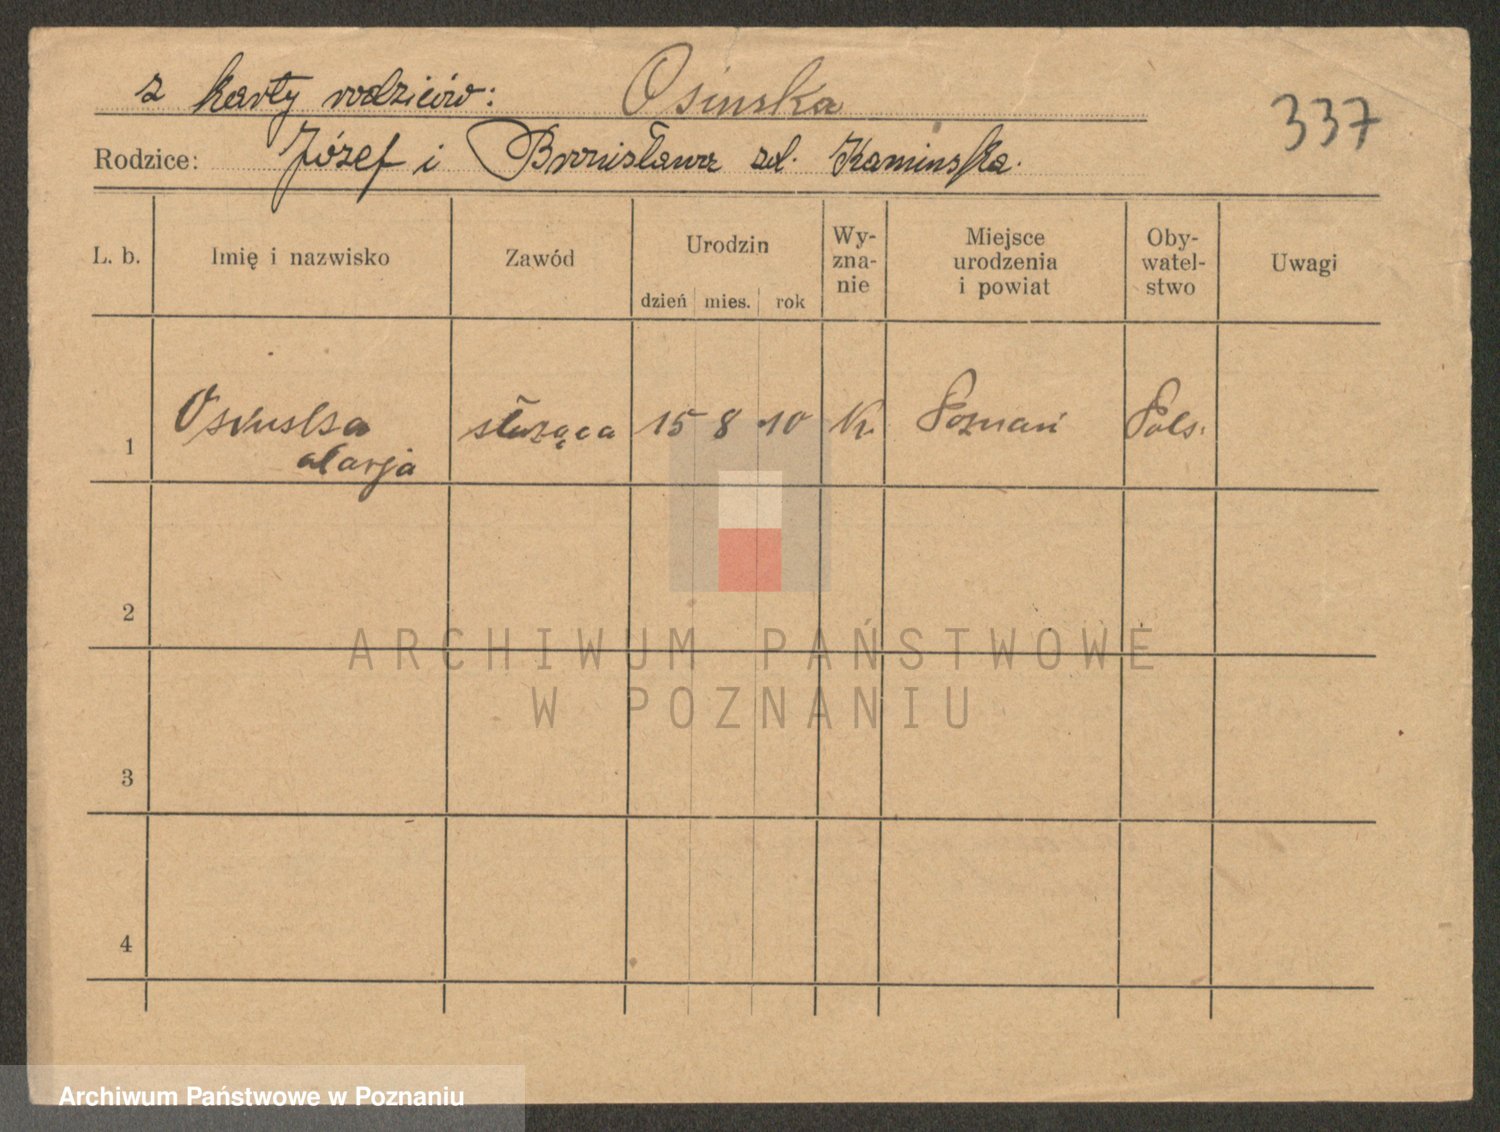 z karty rodziców: Osinska
337
Rodzice: Józef i Bronisława zd. Kaminska.
L. b. Imię i nazwisko Zawód Urodzin Wy-zna-nie Miejsce urodzenia i powiat Oby-watel-stwo Uwagi
dzień mies. rok
1 Osinska Marja służąca 15 8 10 K. Poznań Pols.
2
3
4
ARCHIWUM PAŃSTWOWE
W POZNANIU
Archiwum Państwowe w Poznaniu